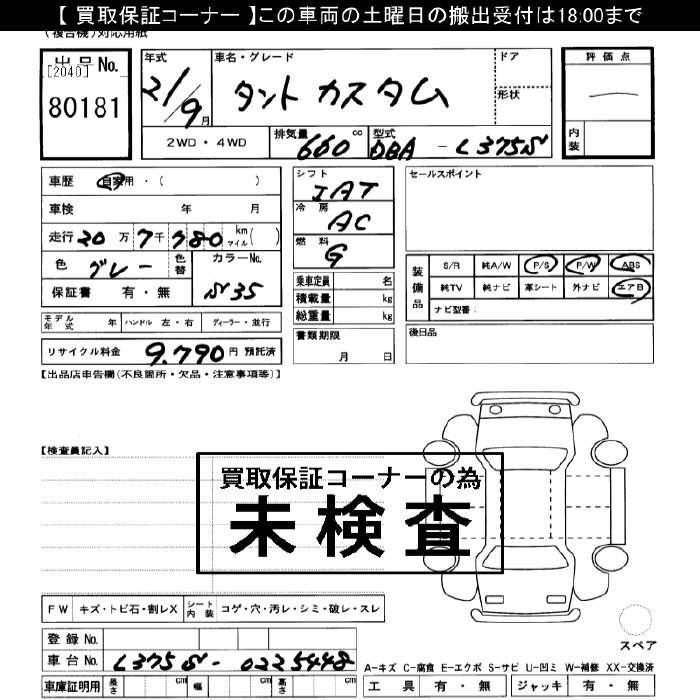 【 買取保証コーナー 】この車両の土曜日の搬出受付は18:00まで
(複合機)対応用紙
出品No.
[2040]
80181
年式
21/9月
車名・グレード
タント カスタム
ドア
形状
評価点
内装
2WD・4WD
排気量 660 cc
型式 DBA - L375S
車歴 自家用・( )
車検 年 月
走行 20万 7千 780 km マイル( )
色 グレー 色替
カラーNo. S35
保証書 有・無
モデル年式 年 ハンドル 左・右 ディーラー・並行
リサイクル料金 9,790円 預託済
シフト IAT
冷房 AC
燃料 G
乗車定員 名
積載量 kg
総重量 kg
書類期限
月 日
セールスポイント
装備品
S/R 純A/W P/S P/W ABS
純TV 純ナビ 革シート 外ナビ エアB
ナビ型番:
後日品
【出品店申告欄(不良箇所・欠品・注意事項等)】
【検査員記入】
買取保証コーナーの為
未検査
FW キズ・トビ石・割レX シート内装 コゲ・穴・汚レ・シミ・破レ・スレ
登録No.
車台No. L375S-0225448
車庫証明用 長さ cm 幅 cm 高さ cm
スペア
A-キズ C-腐食 E-エクボ S-サビ U-凹ミ W-補修 XX-交換済
工具 有・無 ジャッキ 有・無